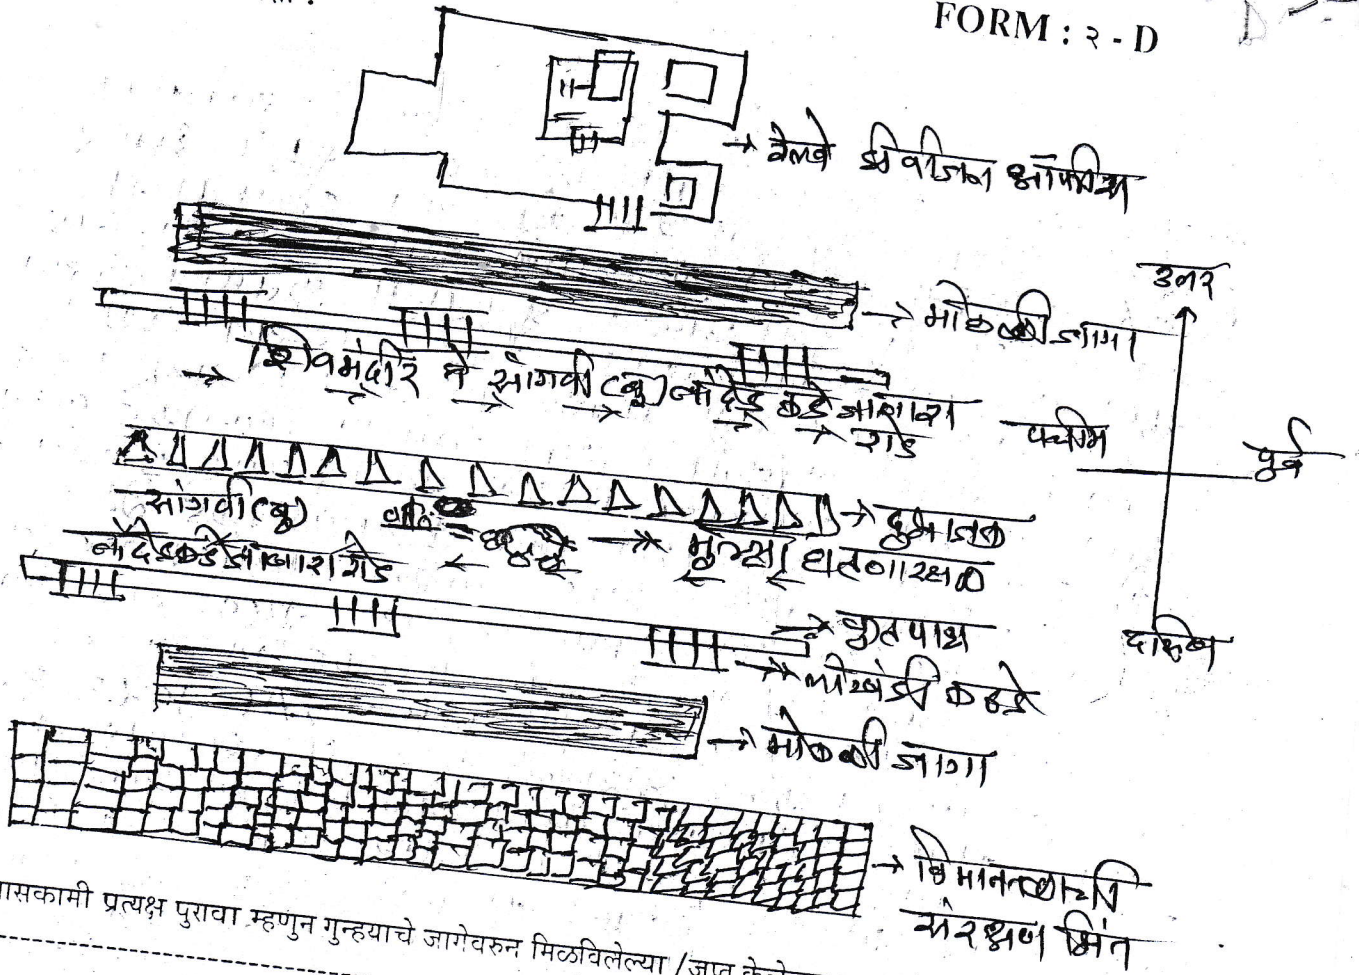 FORM : २ - D
→ रेल्वे डीवीजन ऑफीस
उत्तर
→ मोकळी जागा
→ शिवमंदीर ते सांगवी (बु) नांदेड कडे जाणारा
रोड
पश्चीम
पूर्व
→ दुभाजक
सांगवी (बु)
नांदेडकडे जाणारा रोड
→ गुन्हा घटनास्थळ
→ फुटपाथ
दक्षिण
→ लोखंडी कठडे
→ मोकळी जागा
→ विमानतळाची
संरक्षण भिंत
ासकामी प्रत्यक्ष पुरावा म्हणुन गुन्हयाचे जागेवरुन मिळविलेल्या /जप्त